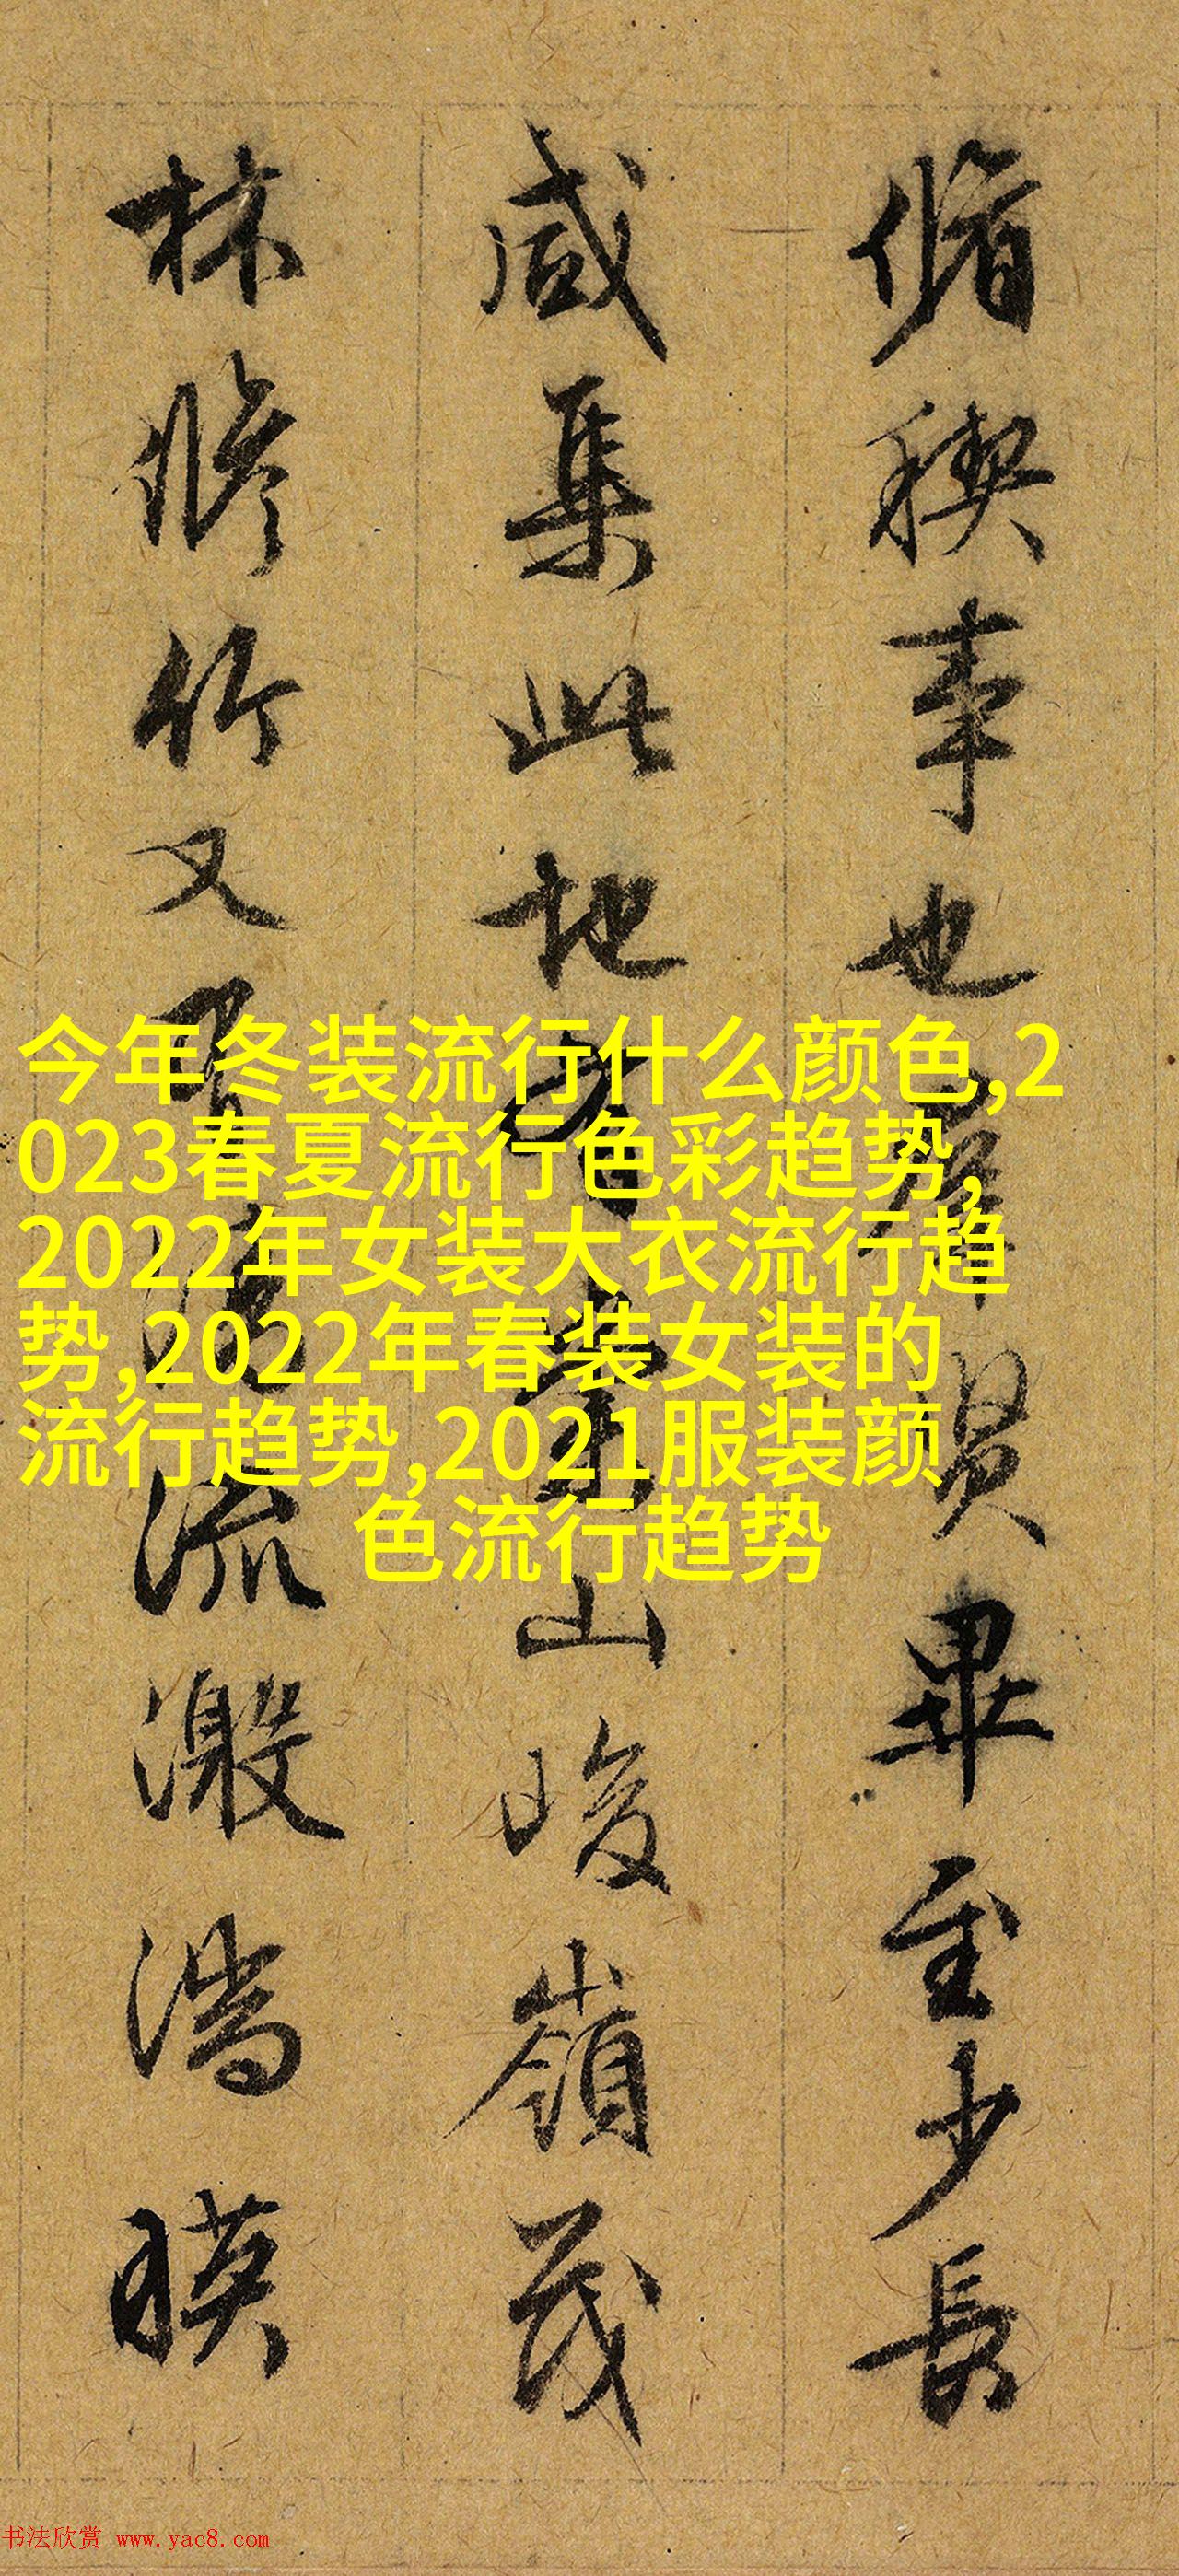 脩稧事也羣賢畢至少長
咸集此地有崇山峻嶺茂
林脩竹又有清流激湍暎
今年冬装流行什么颜色,2
023春夏流行色彩趋势,
2022年女装大衣流行趋
势,2022年春装女装的
流行趋势,2021服装颜
色流行趋势
书法欣赏 www.yac8.com